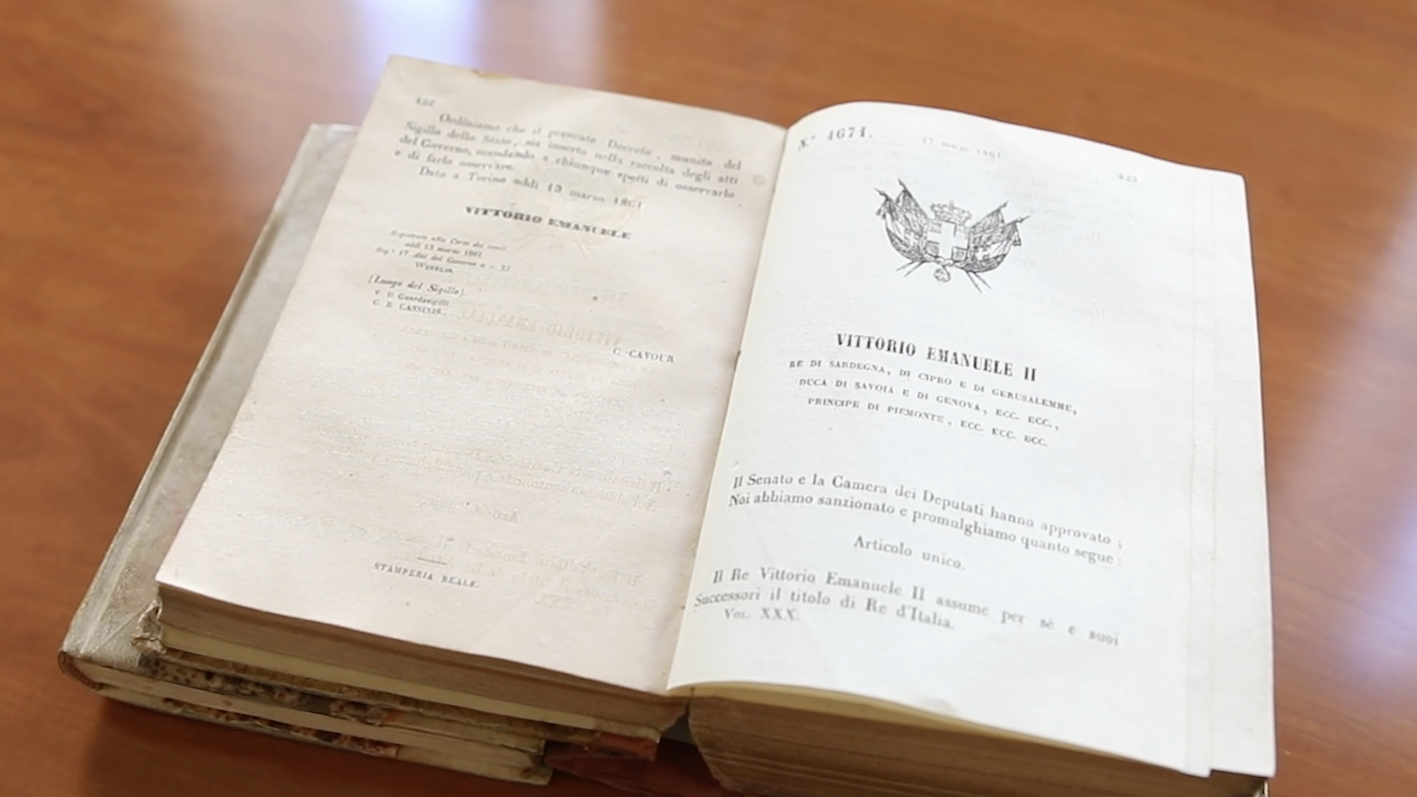 442
Ordiniamo che il presente Decreto, munito del
Sigillo dello Stato, sia inserto nella raccolta degli atti
del Governo, mandando a chiunque spetti di osservarlo
e di farlo osservare.
Dato a Torino addì 13 marzo 1861
VITTORIO EMANUELE
Registrato alla Corte dei conti
addì 13 marzo 1861
Reg° 17 Atti del Governo a c. 23
(Luogo del Sigillo).
V. Il Guardasigilli
G. B. CASSINIS.
C. CAVOUR.
STAMPERIA REALE.
N.° 4671.
17 marzo 1861
443
VITTORIO EMANUELE II
RE DI SARDEGNA, DI CIPRO E DI GERUSALEMME,
DUCA DI SAVOIA E DI GENOVA, ECC. ECC.,
PRINCIPE DI PIEMONTE, ECC. ECC. ECC.
Il Senato e la Camera dei Deputati hanno approvato;
Noi abbiamo sanzionato e promulghiamo quanto segue:
Articolo unico.
Il Re Vittorio Emanuele II assume per sè e suoi
Successori il titolo di Re d'Italia.
Vol. XXX.